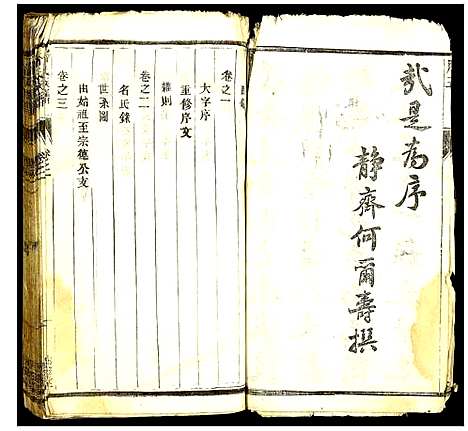 哉是為序
靜齋何爾壽撰
卷之一
大字序
至修序文
雜則
卷之二
名氏錄
世系圖
卷之三
由始祖至宗德公支